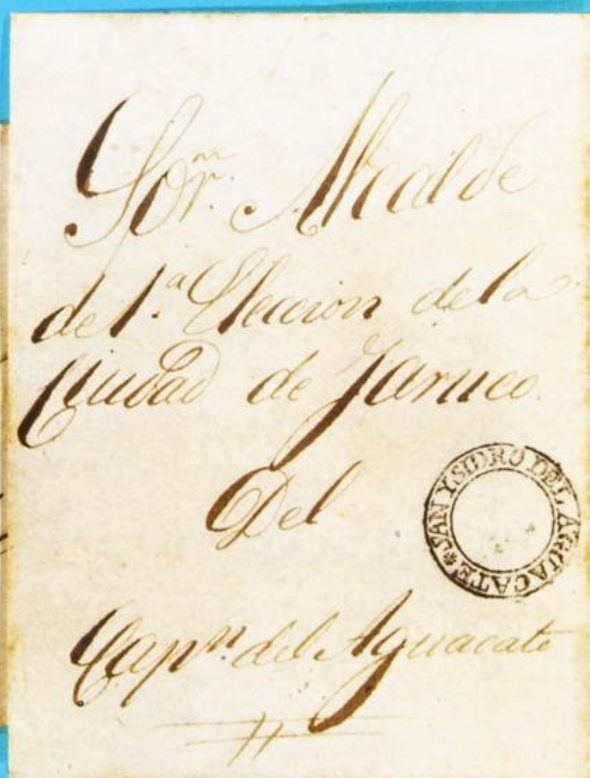 Sor. Alcalde
de 1.ª Eleccion de la
Ciudad de Jaruco.
Del
SAN YSIDRO DEL AGUACATE
Capn. del Aguacate